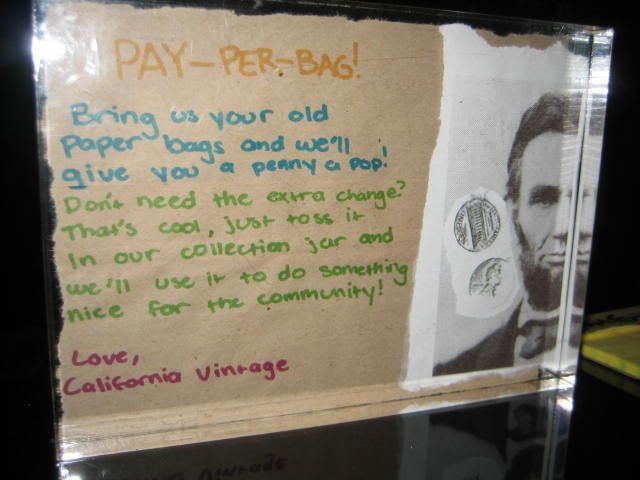 PAY-PER-BAG!
Bring us your old
paper bags and we'll
give you a penny a pop!
Don't need the extra change?
That's cool, just toss it
In our collection jar and
we'll use it to do something
nice for the community!
Love,
California Vintage